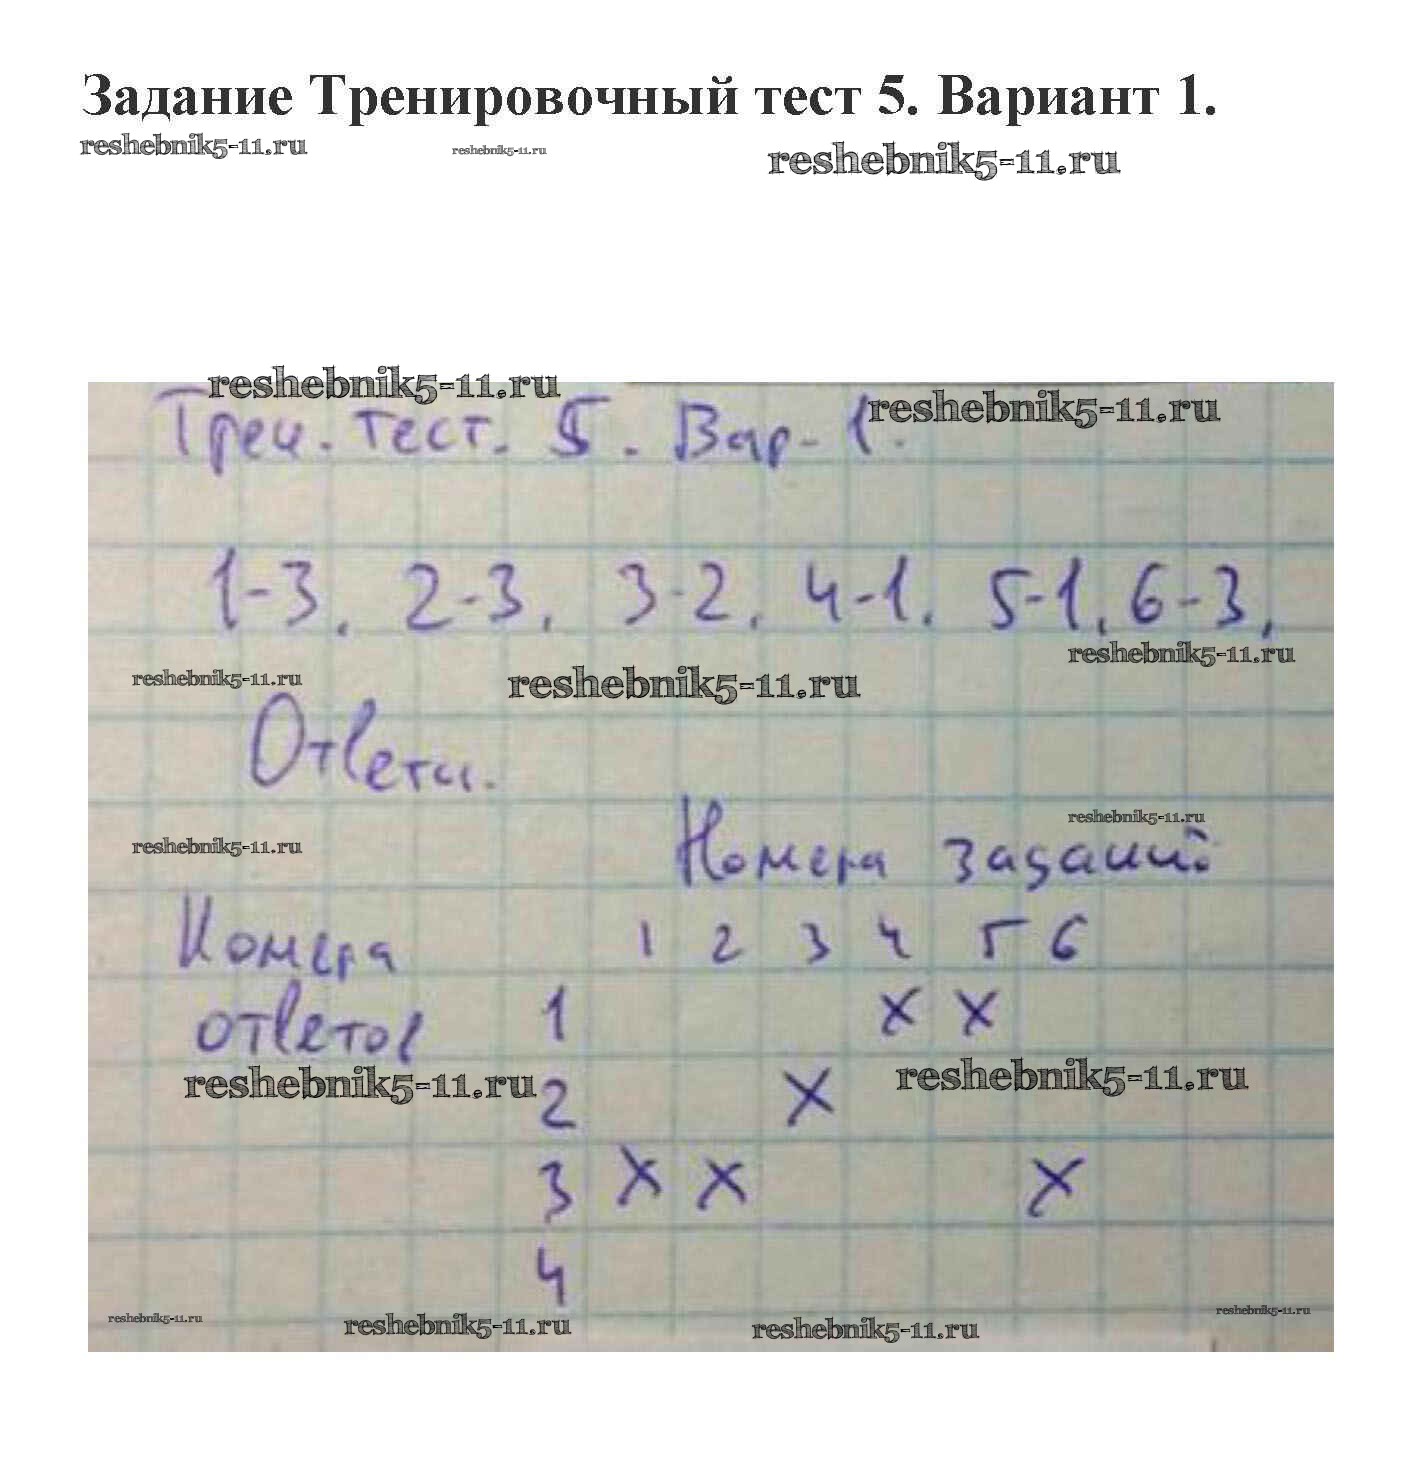 Задание Тренировочный тест 5. Вариант 1.
reshebnik5-11.ru reshebnik5-11.ru reshebnik5-11.ru
reshebnik5-11.ru reshebnik5-11.ru
Трен. тест. 5. Вар-1.
1-3, 2-3, 3-2, 4-1, 5-1, 6-3,
reshebnik5-11.ru reshebnik5-11.ru reshebnik5-11.ru
Ответы.
reshebnik5-11.ru reshebnik5-11.ru
Номера заданий
Номера 1 2 3 4 5 6
ответов 1 х х
reshebnik5-11.ru reshebnik5-11.ru
2 х
3 х х х
4
reshebnik5-11.ru reshebnik5-11.ru reshebnik5-11.ru reshebnik5-11.ru